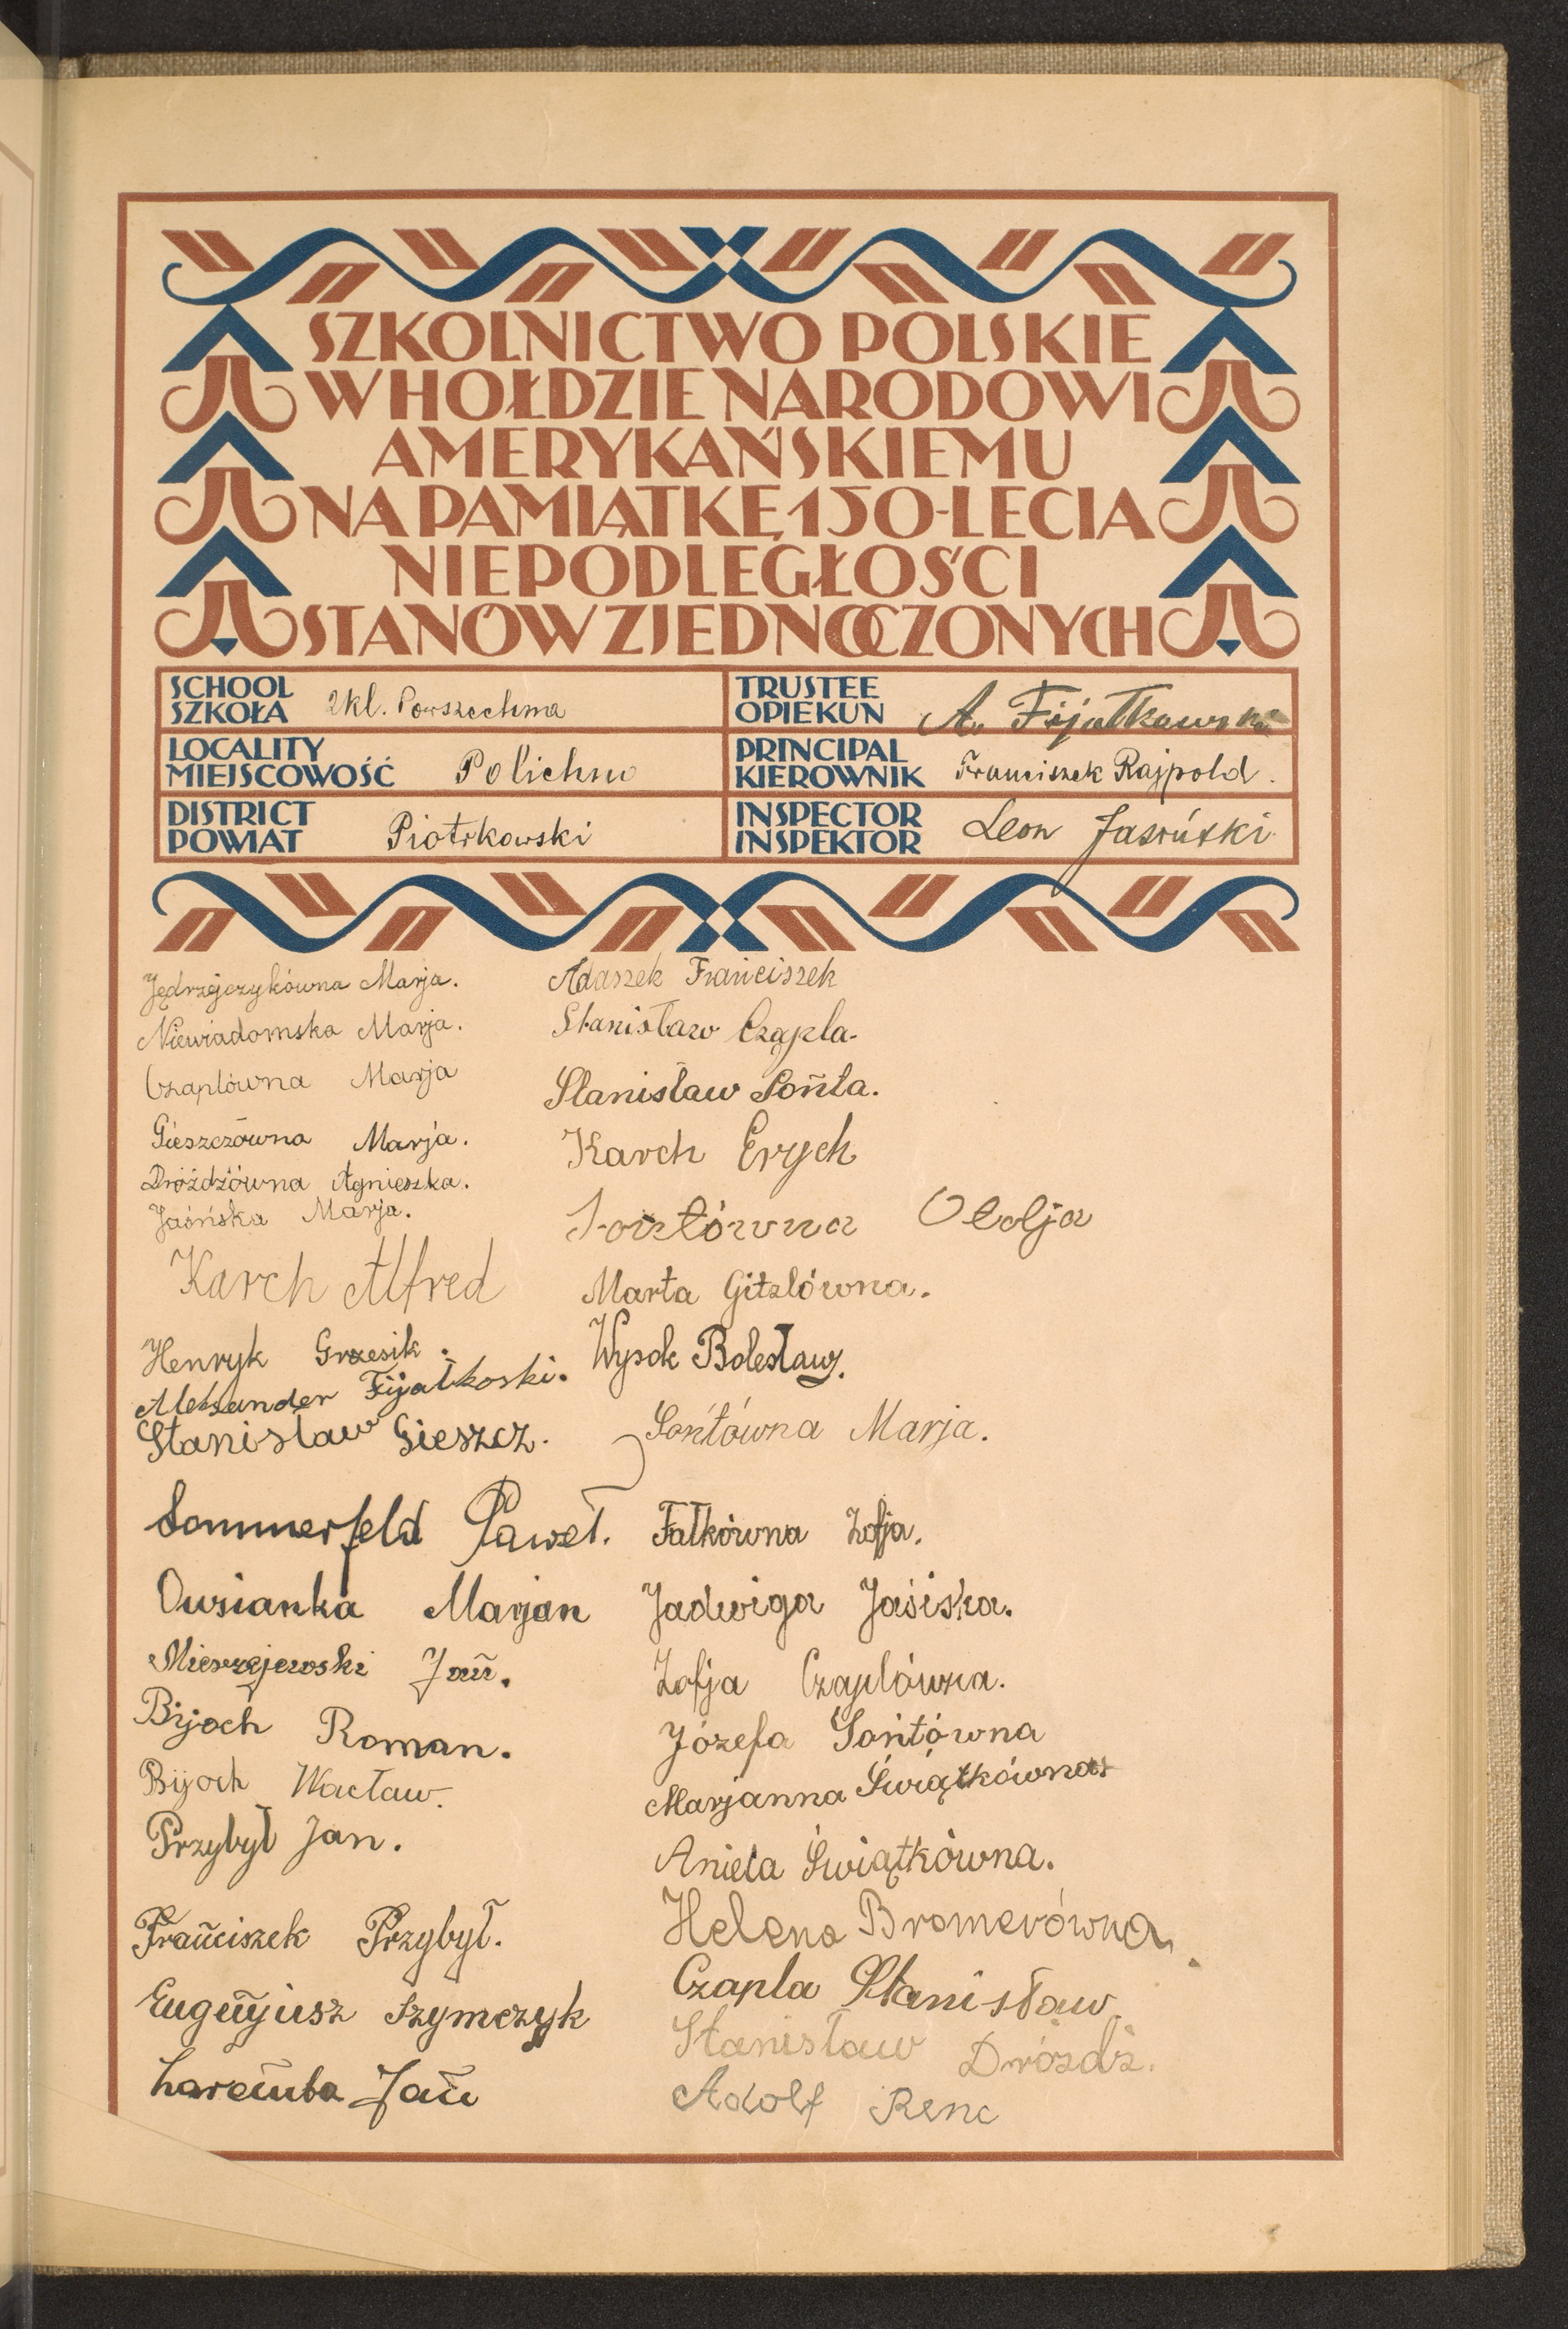 SZKOLNICTWO POLSKIE
W HOŁDZIE NARODOWI
AMERYKAŃSKIEMU
NA PAMIĄTKĘ 150-LECIA
NIEPODLEGŁOŚCI
STANÓW ZJEDNOCZONYCH
SCHOOL
SZKOŁA 2kl. Powszechna
TRUSTEE
OPIEKUN A. Fijałkowski
LOCALITY
MIEJSCOWOŚĆ Polichno
PRINCIPAL
KIEROWNIK Franciszek Rajpold.
DISTRICT
POWIAT Piotrkowski
INSPECTOR
INSPEKTOR Leon
Jędrzejczykówna Marja.
Niewiadomska Marja.
Czaplówna Marja
Gieszczówna Marja.
Dróżdżówna Agnieszka.
Jasińska Marja.
Karch Alfred
Henryk Grzesik.
Aleksander Fijałkoski.
Stanisław Gieszcz.
Sommerfeld Paweł.
Owsianka Marjan
Mierzejewski Jan.
Bijoch Roman.
Bijoch Wacław.
Przybył Jan.
Franciszek Przybył.
Eugenjusz Szymczyk
Zaremba Jan
Adaszek Franciszek
Stanisław Czapla.
Stanisław Sońta.
Karch Erych
Sontówna Otolja
Marta Gitzlówna.
Wysok Bolesław.
Sońtówna Marja.
Fałkówna Zofja.
Jadwiga Jasiska.
Zofja Czaplówna.
Józefa Sońtówna
Marjanna Świątkówna
Aniela Świątkówna.
Helena Bromerówna.
Czapla Stanisław.
Stanisław Dróżdż.
Adolf Renc